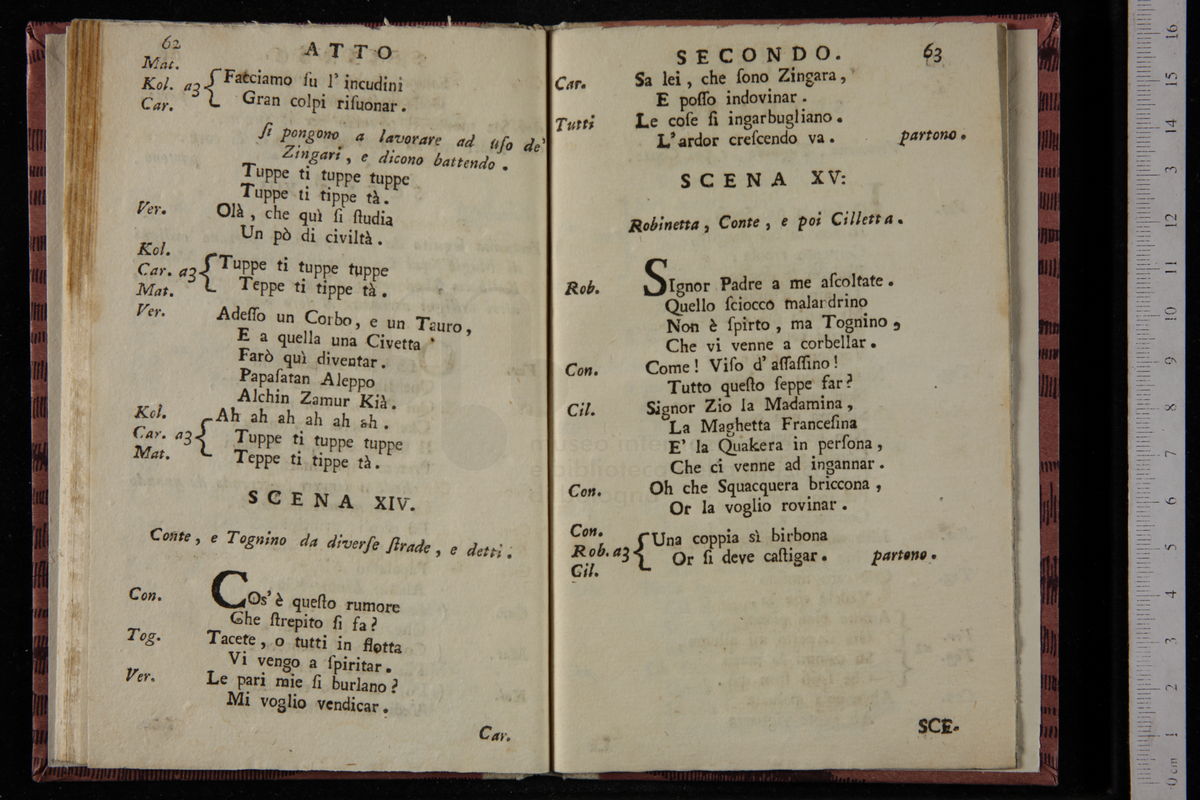 62 ATTO
Mat.
Kol. a3 Facciamo ſu l' incudini
Car. Gran colpi riſuonar.
ſi pongono a lavorare ad uſo de'
Zingari, e dicono battendo.
Tuppe ti tuppe tuppe
Tuppe ti tippe tà.
Ver. Olà, che quì ſi ſtudia
Un pò di civiltà.
Kol.
Car. a3 Tuppe ti tuppe tuppe
Mat. Teppe ti tippe tà.
Ver. Adeſſo un Corbo, e un Tauro,
E a quella una Civetta
Farò quì diventar.
Papaſatan Aleppo
Alchin Zamur Kià.
Kol. Ah ah ah ah ah ah.
Car. a3 Tuppe ti tuppe tuppe
Mat. Teppe ti tippe tà.
SCENA XIV.
Conte, e Tognino da diverſe ſtrade, e detti.
Con. COs' è queſto rumore
Che ſtrepito ſi fa?
Tog. Tacete, o tutti in flotta
Vi vengo a ſpiritar.
Ver. Le pari mie ſi burlano?
Mi voglio vendicar.
Car.
SECONDO. 63
Car. Sa lei, che ſono Zingara,
E poſſo indovinar.
Tutti Le coſe ſi ingarbugliano.
L'ardor creſcendo va. partono.
SCENA XV:
Robinetta, Conte, e poi Cilletta.
Rob. SIgnor Padre a me aſcoltate.
Quello ſciocco malardrino
Non è ſpirto, ma Tognino,
Che vi venne a corbellar.
Con. Come! Viſo d' aſſaſſino!
Tutto queſto ſeppe far?
Cil. Signor Zio la Madamina,
La Maghetta Franceſina
E' la Quakera in perſona,
Che ci venne ad ingannar.
Con. Oh che Squacquera briccona,
Or la voglio rovinar.
Con. Una coppia sì birbona
Rob. a3 Or ſi deve caſtigar. partono.
Cil.
SCE-
0 cm 1 2 3 4 5 6 7 8 9 10 11 12 13 14 15 16